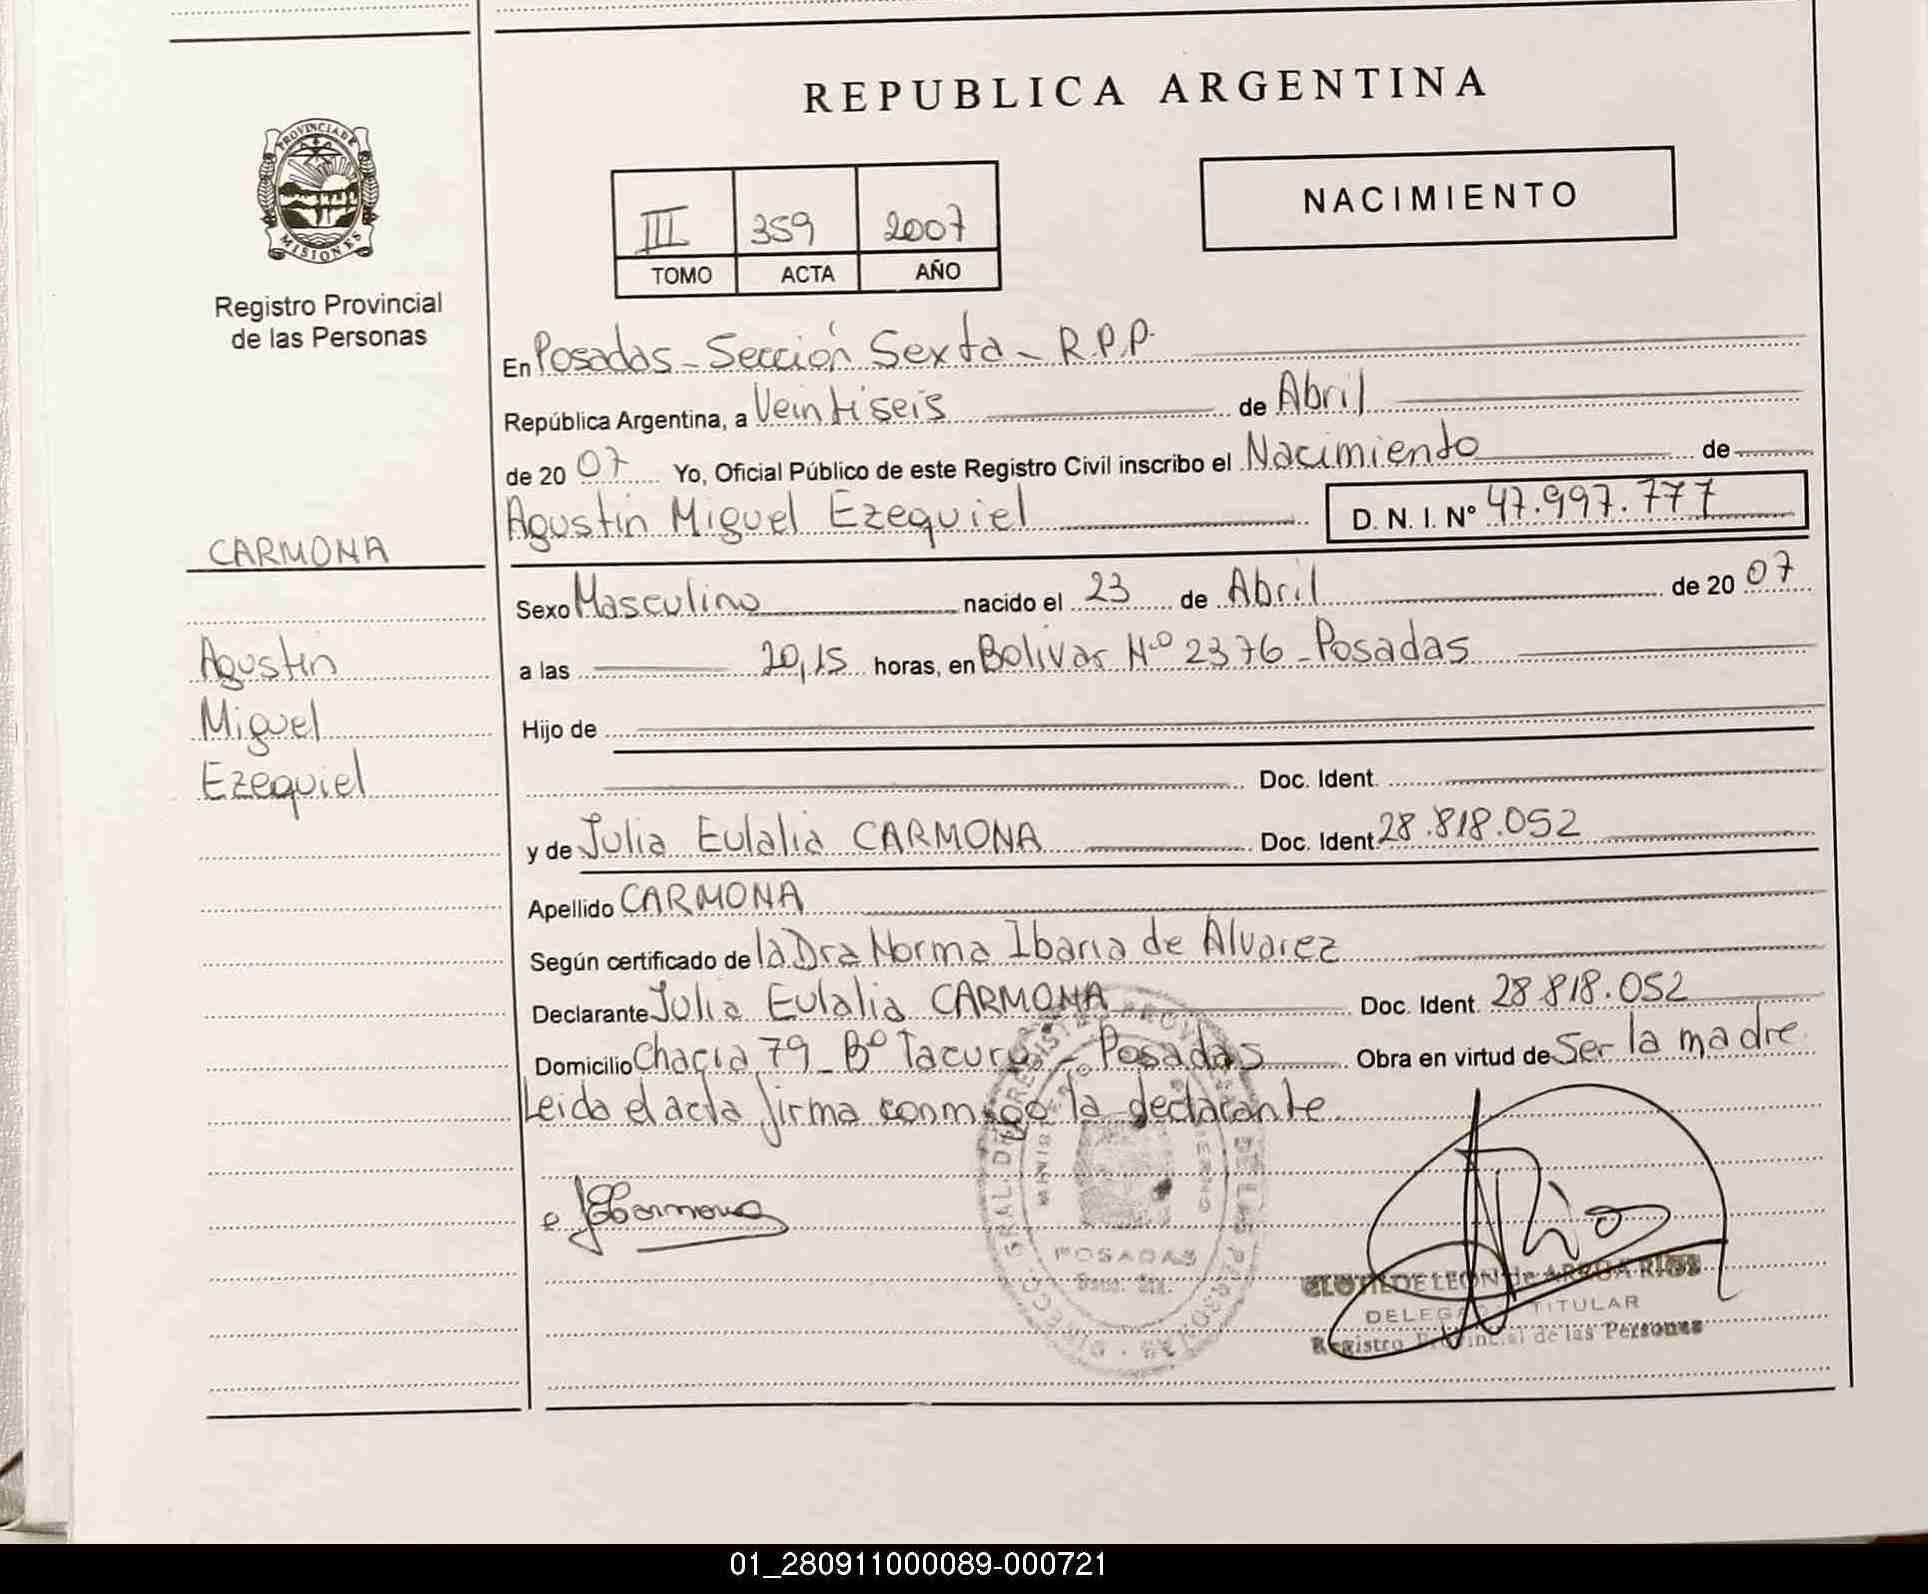 REPUBLICA ARGENTINA
PROVINCIA DE
MISIONES
Registro Provincial
de las Personas
III 359 2007
TOMO ACTA AÑO
NACIMIENTO
En Posadas - Sección Sexta - R.P.P.
República Argentina, a Veintiseis de Abril
de 2007 Yo, Oficial Público de este Registro Civil inscribo el Nacimiento de
Agustin Miguel Ezequiel D. N. I. N° 47.997.777
CARMONA
Sexo Masculino nacido el 23 de Abril de 2007
Agustin
a las 20,15 horas, en Bolivar N.º 2376 - Posadas
Miguel
Hijo de
Ezequiel
Doc. Ident.
y de Julia Eulalia CARMONA Doc. Ident. 28.818.052
Apellido CARMONA
Según certificado de la Dra Norma Ibarra de Alvarez
Declarante Julia Eulalia CARMONA Doc. Ident. 28 818.052
Domicilio Chacra 79 - Bº Tacuru - Posadas Obra en virtud de Ser la madre
Leida el acta firma conmigo la declarante
JECarmona
POSADAS
DELEGADA TITULAR
Registro Provincial de las Personas
01_280911000089-000721